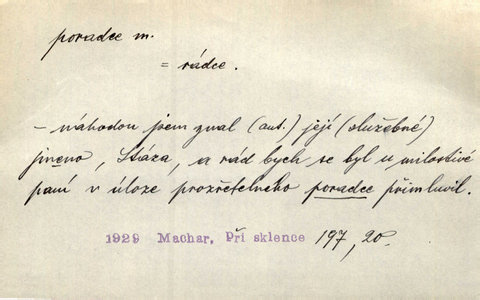 poradce m.
= rádce.
– náhodou jsem znal (aut.) její (služebné)
jméno, Stáza, a rád bych se byl u milostivé
paní v úloze prozřetelného poradce přimluvil.
1929 Machar, Při sklence 197, 20.